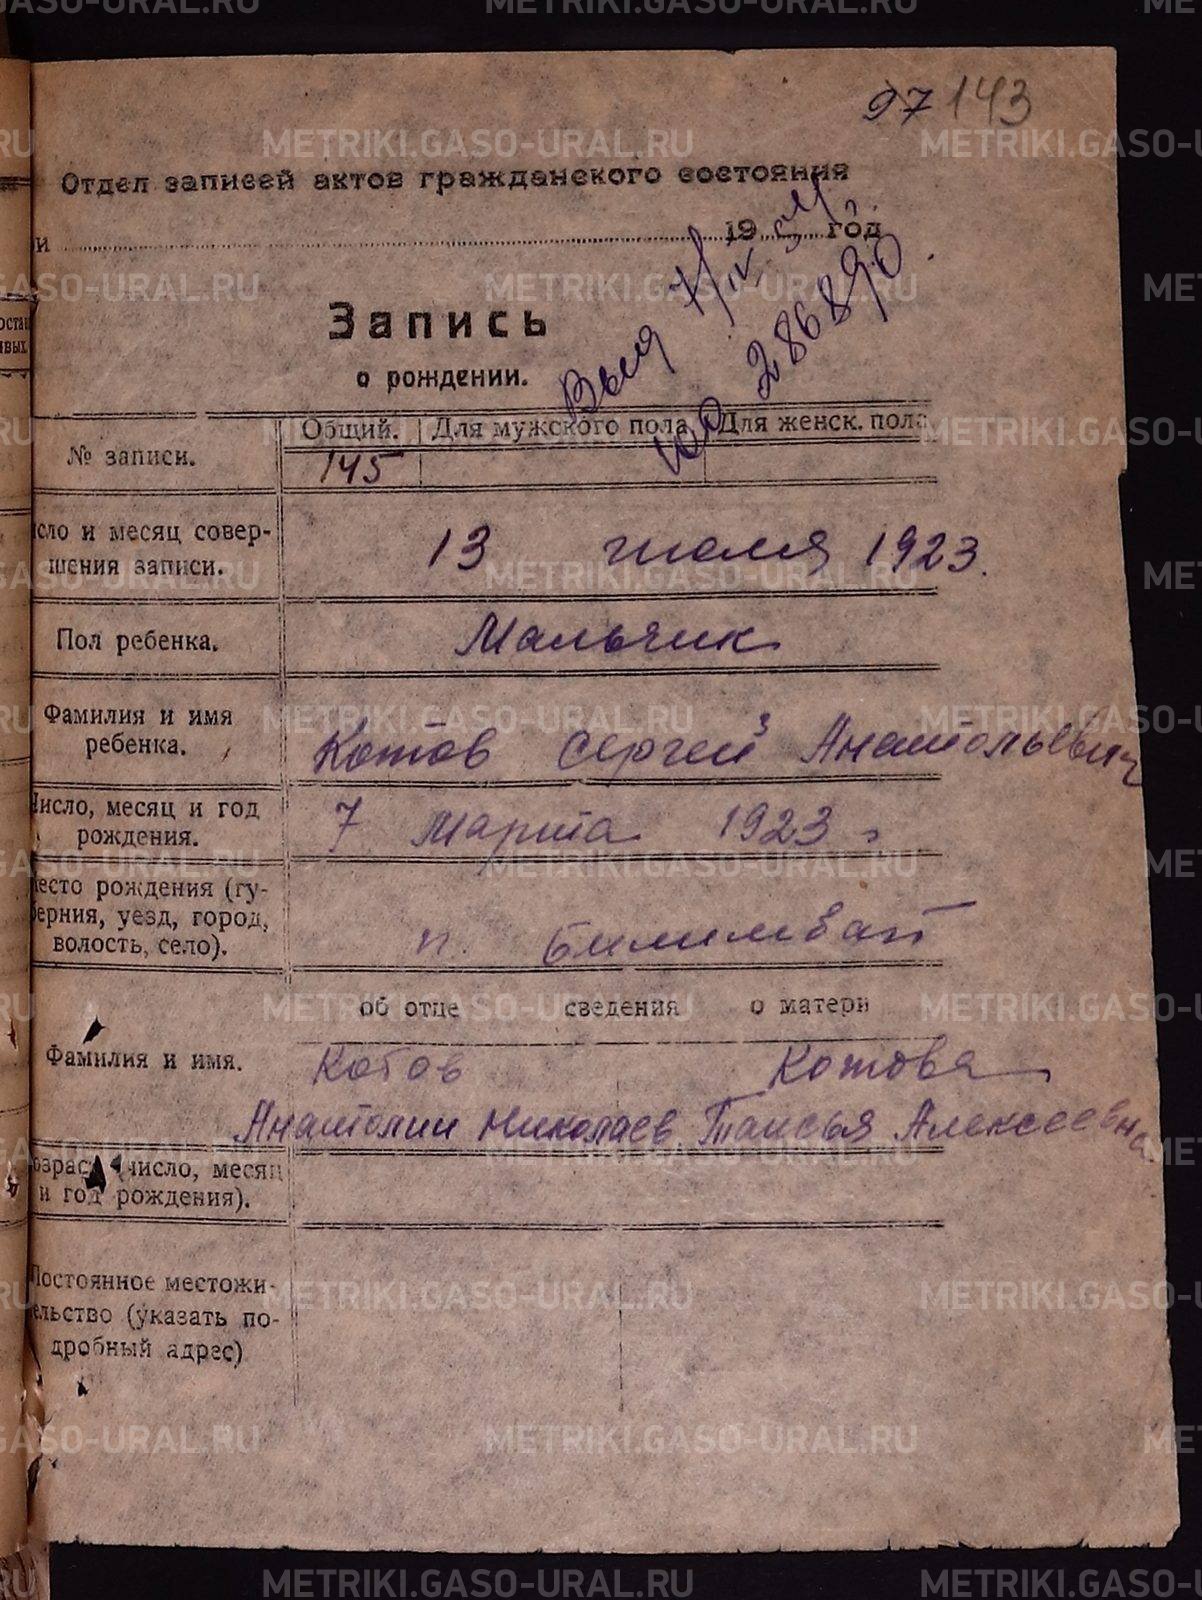 97 143
Отдел записей актов гражданского состояния
и 19 54 год
Выд 7/IV
юо 286890.
Запись
о рождении.
№ записи.
Общий. Для мужского пола Для женск. пола
145
исло и месяц совер-
шения записи.
13 июля 1923.
Пол ребенка.
Мальчик
Фамилия и имя
ребенка.
Котов Сергей Анатольевич
Число, месяц и год
рождения.
7 марта 1923 г
место рождения (гу-
берния, уезд, город,
волость, село).
п. Билимбай
об отце сведения о матери
Фамилия и имя.
Котов Котова
Анатолии Николаев Таисья Алексеевна
озраст (число, месяц
и год рождения).
Постоянное местожи-
ельство (указать по-
дробный адрес)
остав
ивых.
METRIKI.GASO-URAL.RU